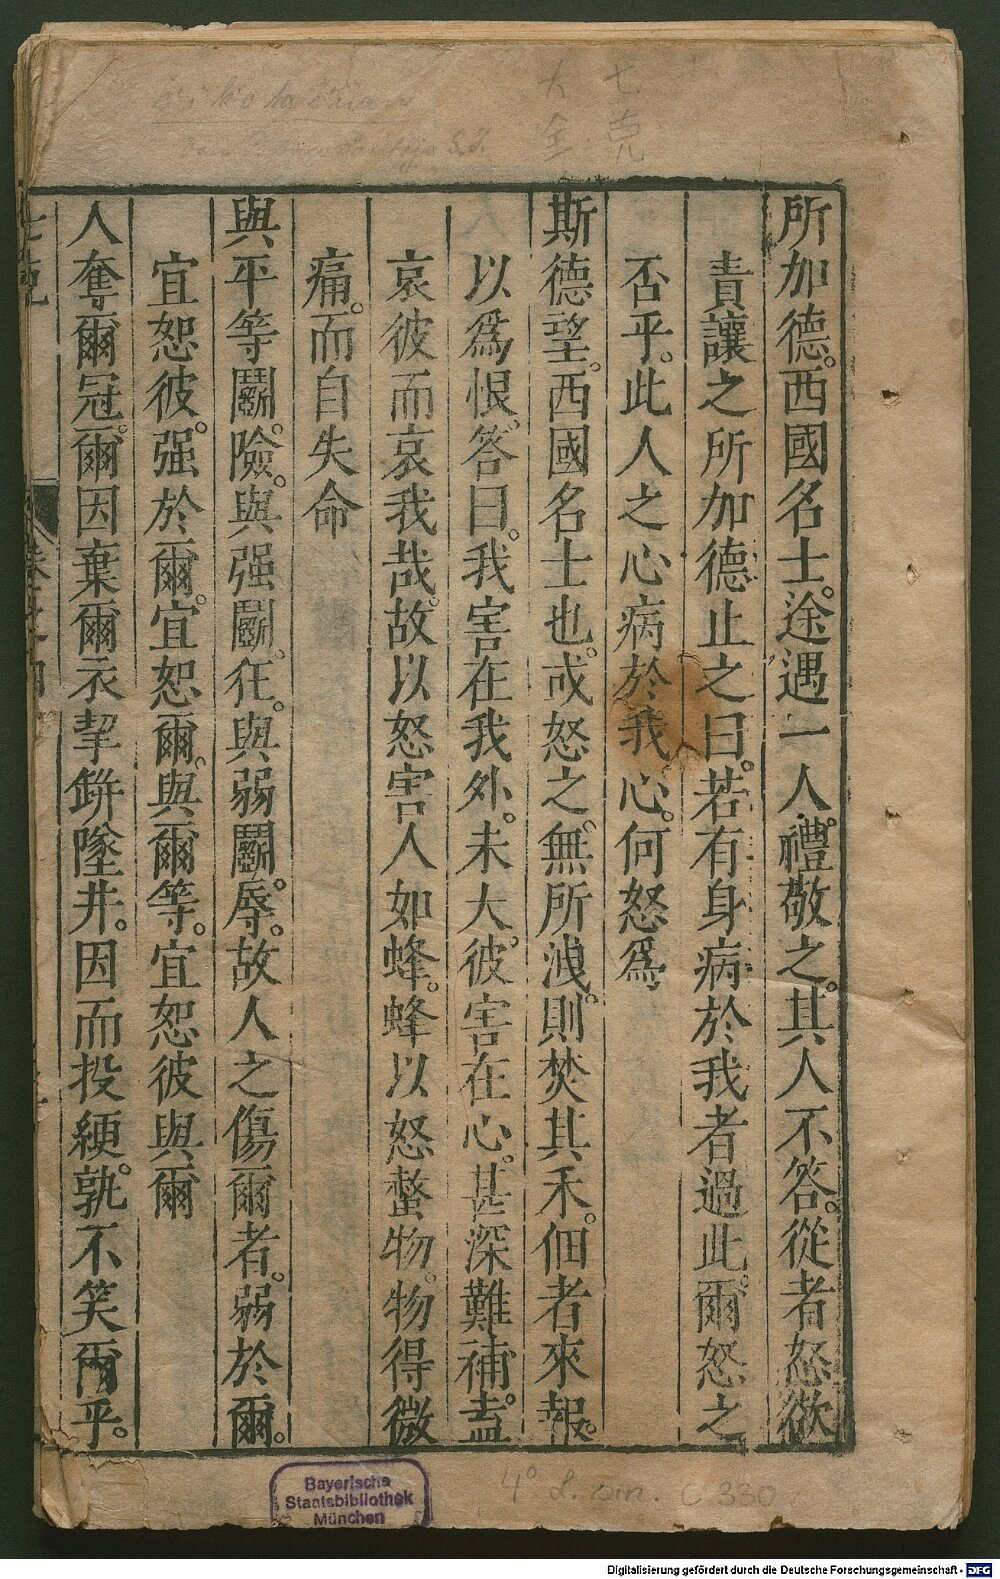 七克
大全
所加德。西國名士。途遇一人。禮敬之。其人不答。從者怒欲
責讓之所加德止之曰。若有身病於我者過此。爾怒之
否乎。此人之心病於我心。何怒爲
斯德望。西國名士也。或怒之。無所洩。則焚其禾。佃者來報。
以爲恨。答曰。我害在我外。未大。彼害在心。甚深難補。盍
哀彼而哀我哉。故以怒害人如蜂。蜂以怒螫物。物得微
痛。而自失命
與平等鬬。險。與强鬬。狂。與弱鬬。辱。故人之傷爾者。弱於爾。
宜恕彼。强於爾。宜恕爾。與爾等。宜恕彼與爾
人奪爾冠。爾因棄爾衣。挈缾墜井。因而投綆。孰不笑爾乎。
七克
卷之四
Bayerische
Staatsbibliothek
München
4° L. sin. C 330
Digitalisierung gefördert durch die Deutsche Forschungsgemeinschaft - DFG